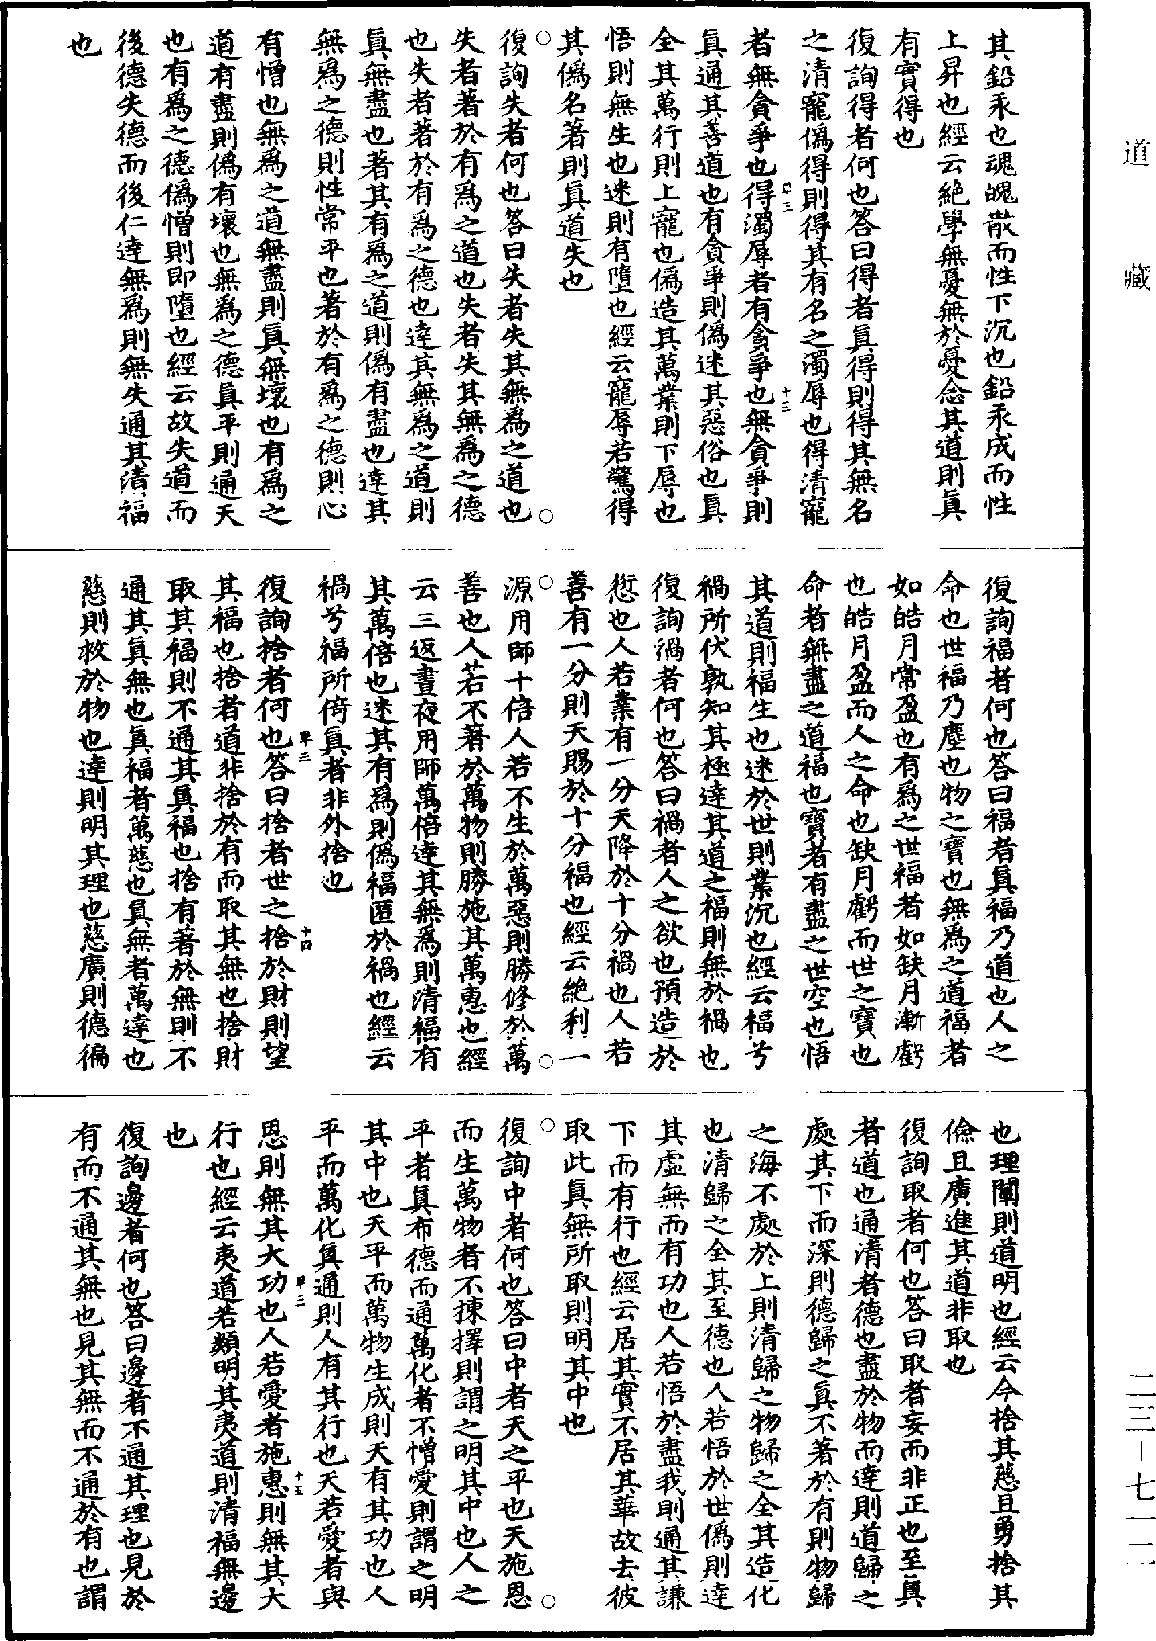 其鉛汞也魂魄散而性下沉也鉛汞成而性
上昇也經云絕學無憂無於憂念其道則真
有實得也
復詢得者何也答曰得者真得則得其無名
之清寵偽得則得其有名之濁辱也得清寵
者無貪爭也得濁辱者有貪爭也無貪爭則
真通其善道也有貪爭則偽迷其惡俗也真
全其萬行則上寵也偽造其萬業則下辱也
悟則無生也迷則有墮也經云寵辱若驚得
其偽名著則真道失也
復詢失者何也答曰失者失其無為之道也
失者著於有為之道也失者失其無為之德
也失者著於有為之德也達其無為之道則
真無盡也著其有為之道則偽有盡也達其
無為之德則性常平也著於有為之德則心
有憎也無為之道無盡則真無壞也有為之
道有盡則偽有壞也無為之德真平則通天
也有為之德偽憎則即墮也經云故失道而
後德失德而後仁達無為則無失通其清福
也
復詢福者何也答曰福者真福乃道也人之
命也世福乃塵也物之寶也無為之道福者
如皓月常盈也有為之世福者如缺月漸虧
也皓月盈而人之命也缺月虧而世之寶也
命者無盡之道福也寶者有盡之世空也悟
其道則福生也迷於世則業沉也經云福兮
禍所伏孰知其極達其道之福則無於禍也
復詢禍者何也答曰禍者人之欲也預造於
愆也人若業有一分天降於十分禍也人若
善有一分則天賜於十分福也經云絕利一
源用師十倍人若不生於萬惡則勝修於萬
善也人若不著於萬物則勝施其萬惠也經
云三返晝夜用師萬倍達其無為則清福有
其萬倍也迷其有為則偽福匿於禍也經云
禍兮福所倚真者非外捨也
復詢捨者何也答曰捨者世之捨於財則望
其福也捨者道非捨於有而取其無也捨財
取其福則不通其真福也捨有著於無則不
通其真無也真福者萬慈也真無者萬達也
慈則救於物也達則明其理也慈廣則德徧
也理闡則道明也經云今捨其慈且勇捨其
儉且廣進其道非取也
復詢取者何也答曰取者妄而非正也至真
者道也通清者德也盡於物而達則道歸之
處其下而深則德歸之真不著於有則物歸
之海不處於上則清歸之物歸之全其造化
也清歸之全其至德也人若悟於世偽則達
其虛無而有功也人若悟於盡我則通其謙
下而有行也經云居其實不居其華故去彼
取此真無所取則明其中也
復詢中者何也答曰中者天之平也天施恩
而生萬物者不揀擇則謂之明其中也人之
平者真布德而通萬化者不憎愛則謂之明
其中也天平而萬物生成則天有其功也人
平而萬化真通則人有其行也天若愛者與
恩則無其大功也人若愛者施惠則無其大
行也經云夷道若纇明其夷道則清福無邊
也
復詢邊者何也答曰邊者不通其理也見於
有而不通其無也見其無而不通於有也謂
道藏
二三—七一一